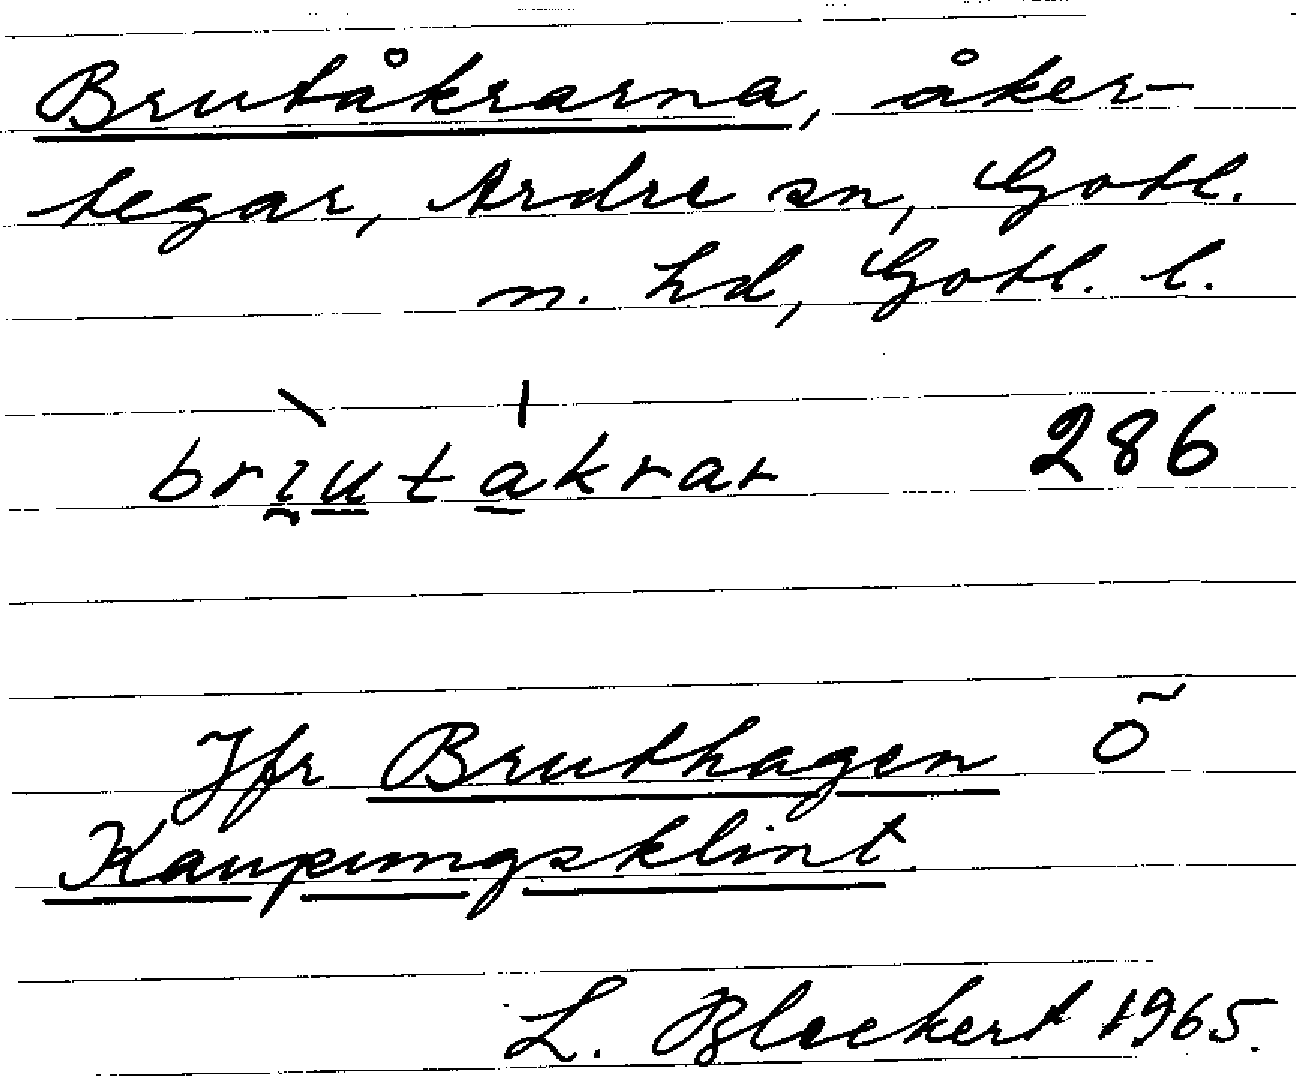 Brutåkrarna, åker-
tegar, Ardre sn, Gotl.
n. hd, Gotl. l.
brı̯̀utákrar 286
Jfr Bruthagen Õ
Kaupungsklint
L. Bleckert 1965.